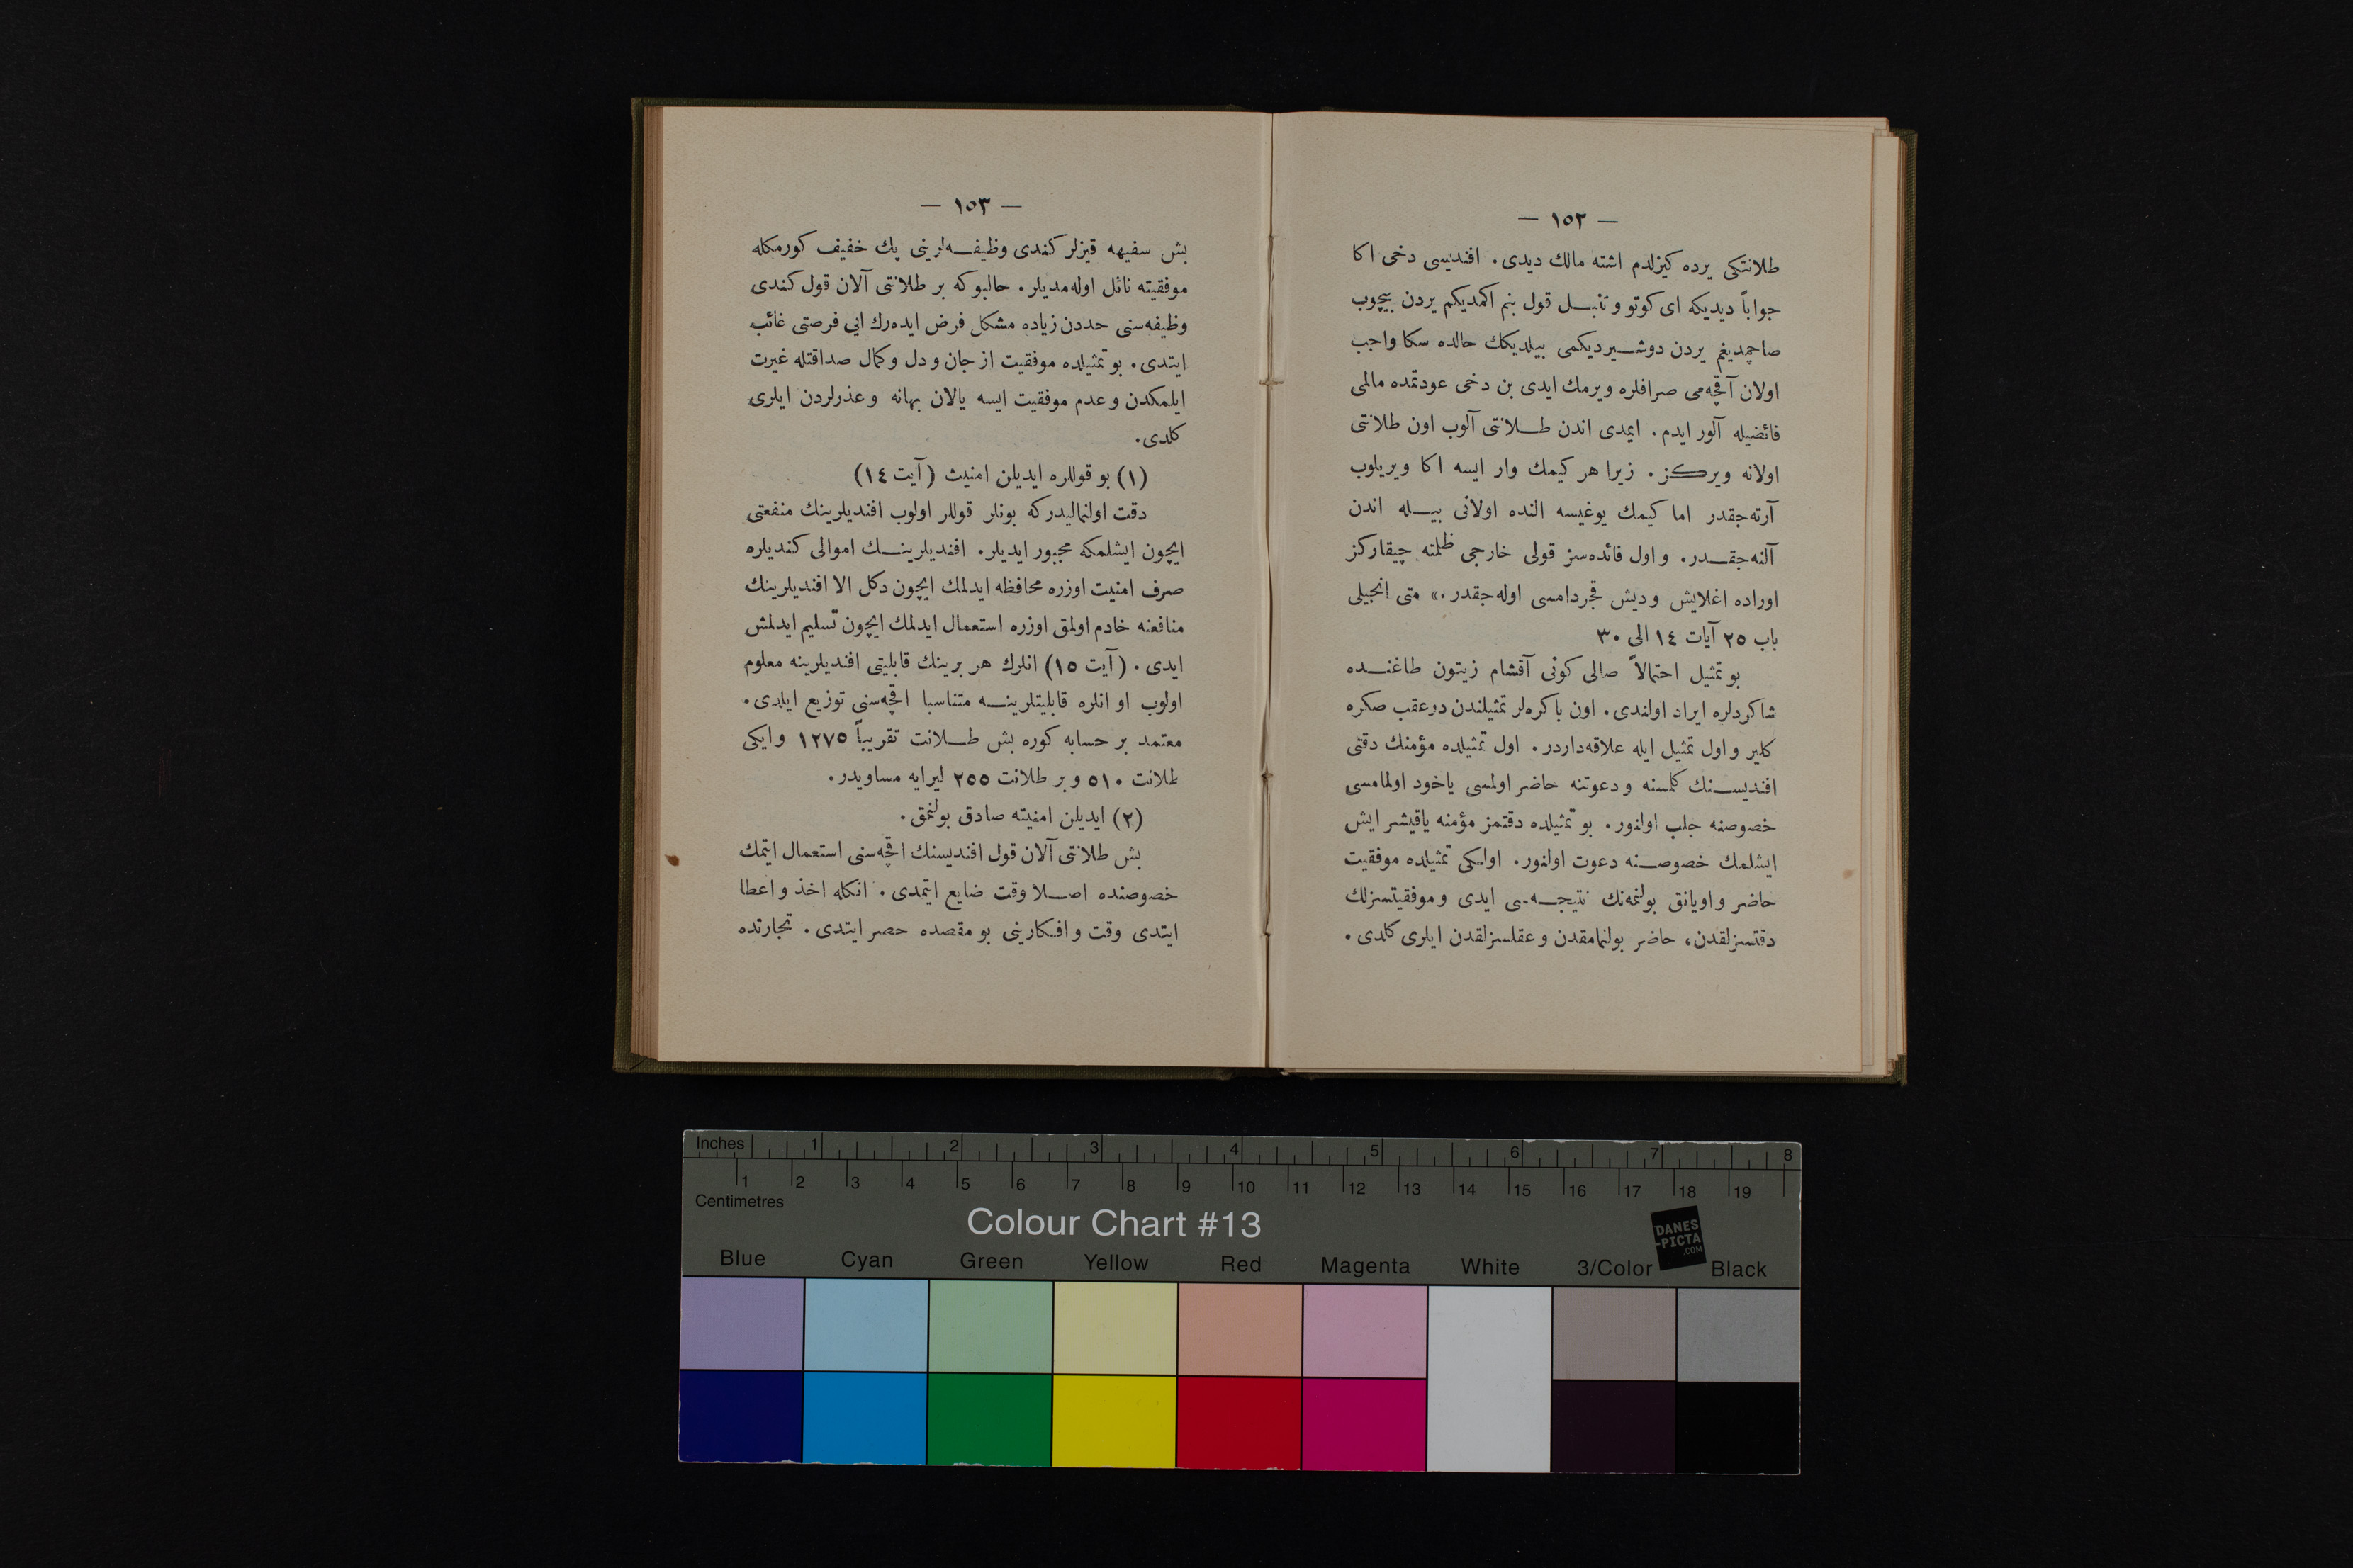 — ١٥٢ —
طلانتكی یرده كیزلدم اشته مالك دیدی. افندیسی دخی اكا
جواباً دیدیكه ای كوتو و تنبل قول بنم اكمدیكم یردن بیچوب
صاچمدیغم یردن دوشیردیكمی بیلدیكك حالده سكا واجب
اولان آقچه‌می صرافلره ویرمك ایدی بن دخی عودتمده مالمی
فائضیله آلور ایدم. ایمدی اندن طلانتی آلوب اون طلانتی
اولانه ویركز. زیرا هر كیمك وار ایسه اكا ویریلوب
آرته‌جقدر اما كیمك یوغیسه النده اولانی بیله اندن
آلنه‌جقدر. و اول فائده‌سز قولی خارجی ظلمته چیقاركز
اوراده اغلایش و دیش قجردامسی اوله‌جقدر.» متی انجیلی
باب ٢٥ آیات ١٤ الی ٣٠
بو تمثیل احتمالاً صالی كونی آقشام زیتون طاغنده
شاكردلره ایراد اولندی. اون باكره‌لر تمثیلندن درعقب صكره
كلیر و اول تمثیل ایله علاقه‌داردر. اول تمثیلده مؤمنك دقتی
افندیسنك كلمسنه و دعوتنه حاضر اولمسی یاخود اولمامسی
خصوصنه جلب اولنور. بو تمثیلده دقتمز مؤمنه یاقیشر ایش
ایشلمك خصوصنه دعوت اولنور. اولكی تمثیلده موفقیت
حاضر و اویانق بولنمه‌نك نتیجه‌سی ایدی و موفقیتسزلك
دقتسزلقدن، حاضر بولنمامقدن و عقلسزلقدن ایلری كلدی.
— ١٥٣ —
بش سفیهه قیزلر كندی وظیفه‌لرینی پك خفیف كورمكله
موفقیته نائل اوله‌مدیلر. حالبوكه بر طلانتی آلان قول كندی
وظیفه‌سنی حددن زیاده مشكل فرض ایده‌رك ایی فرصتی غائب
ایتدی. بو تمثیلده موفقیت از جان و دل و كمال صداقتله غیرت
ایلمكدن و عدم موفقیت ایسه یالان بهانه و عذرلردن ایلری
كلدی.
(١) بو قوللره ایدیلن امنیت (آیت ١٤)
دقت اولنمالیدركه بونلر قوللر اولوب افندیلرینك منفعتی
ایچون ایشلمكه مجبور ایدیلر. افندیلرینك اموالی كندیلره
صرف امنیت اوزره محافظه ایدلمك ایچون دكل الا افندیلرینك
منافعنه خادم اولمق اوزره استعمال ایدلمك ایچون تسلیم ایدلمش
ایدی. (آیت ١٥) انلرك هر برینك قابلیتی افندیلرینه معلوم
اولوب او انلره قابلیتلرینه متناسبا اقچه‌سنی توزیع ایلدی.
معتمد بر حسابه كوره بش طلانت تقریباً ١٢٧٥ و ایكی
طلانت ٥١٠ و بر طلانت ٢٥٥ لیرایه مساویدر.
(٢) ایدیلن امنیته صادق بولنمق.
بش طلانتی آلان قول افندیسنك اقچه‌سنی استعمال ایتمك
خصوصنده اصلا وقت ضایع ایتمدی. انكله اخذ و اعطا
ایتدی وقت و افكارینی بو مقصده حصر ایتدی. تجارتده
Inches 1 2 3 4 5 6 7 8
1 2 3 4 5 6 7 8 9 10 11 12 13 14 15 16 17 18 19
Centimetres
Colour Chart #13
DANES
-PICTA
.COM
Blue Cyan Green Yellow Red Magenta White 3/Color Black